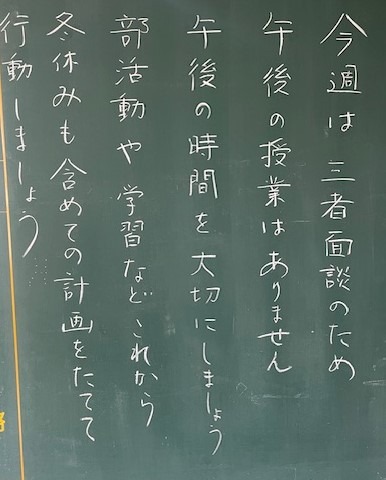 今週は三者面談のため
午後の授業はありません
午後の時間を大切にしましょう
部活動や学習などこれから
冬休みも含めての計画をたてて
行動しましょう